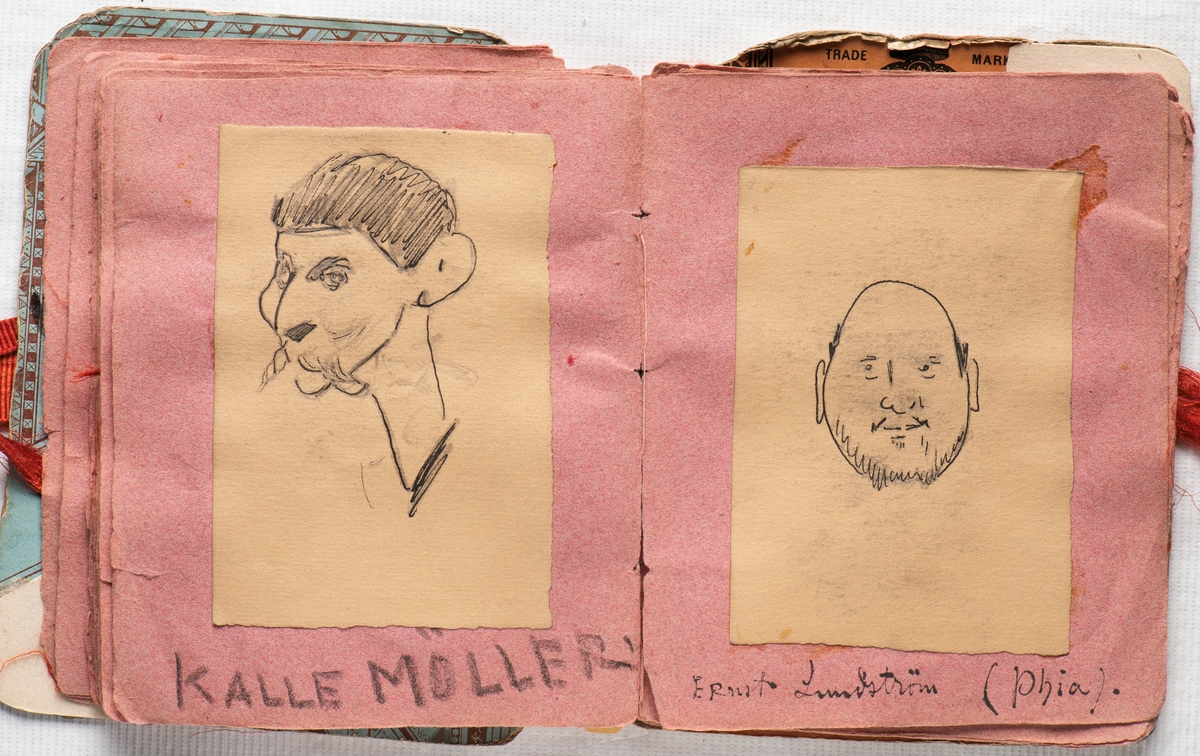 TRADE MARK
KALLE MÖLLER.
Ernst Lundström (Phia).